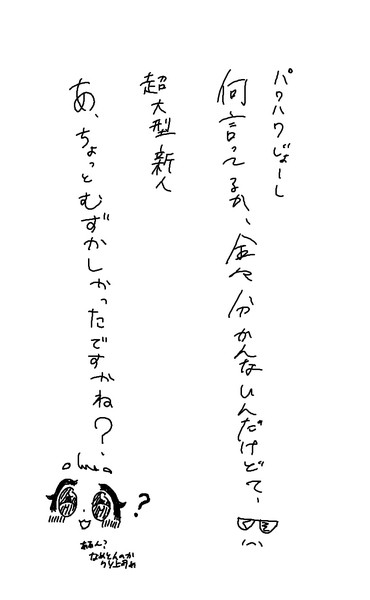 パワハラじょーし
何言ってるか、全々分かんないんだけどて、
超大型新人
あ、ちょっとむずかしかったですかね？
?
なめとんのか
クソ上司が